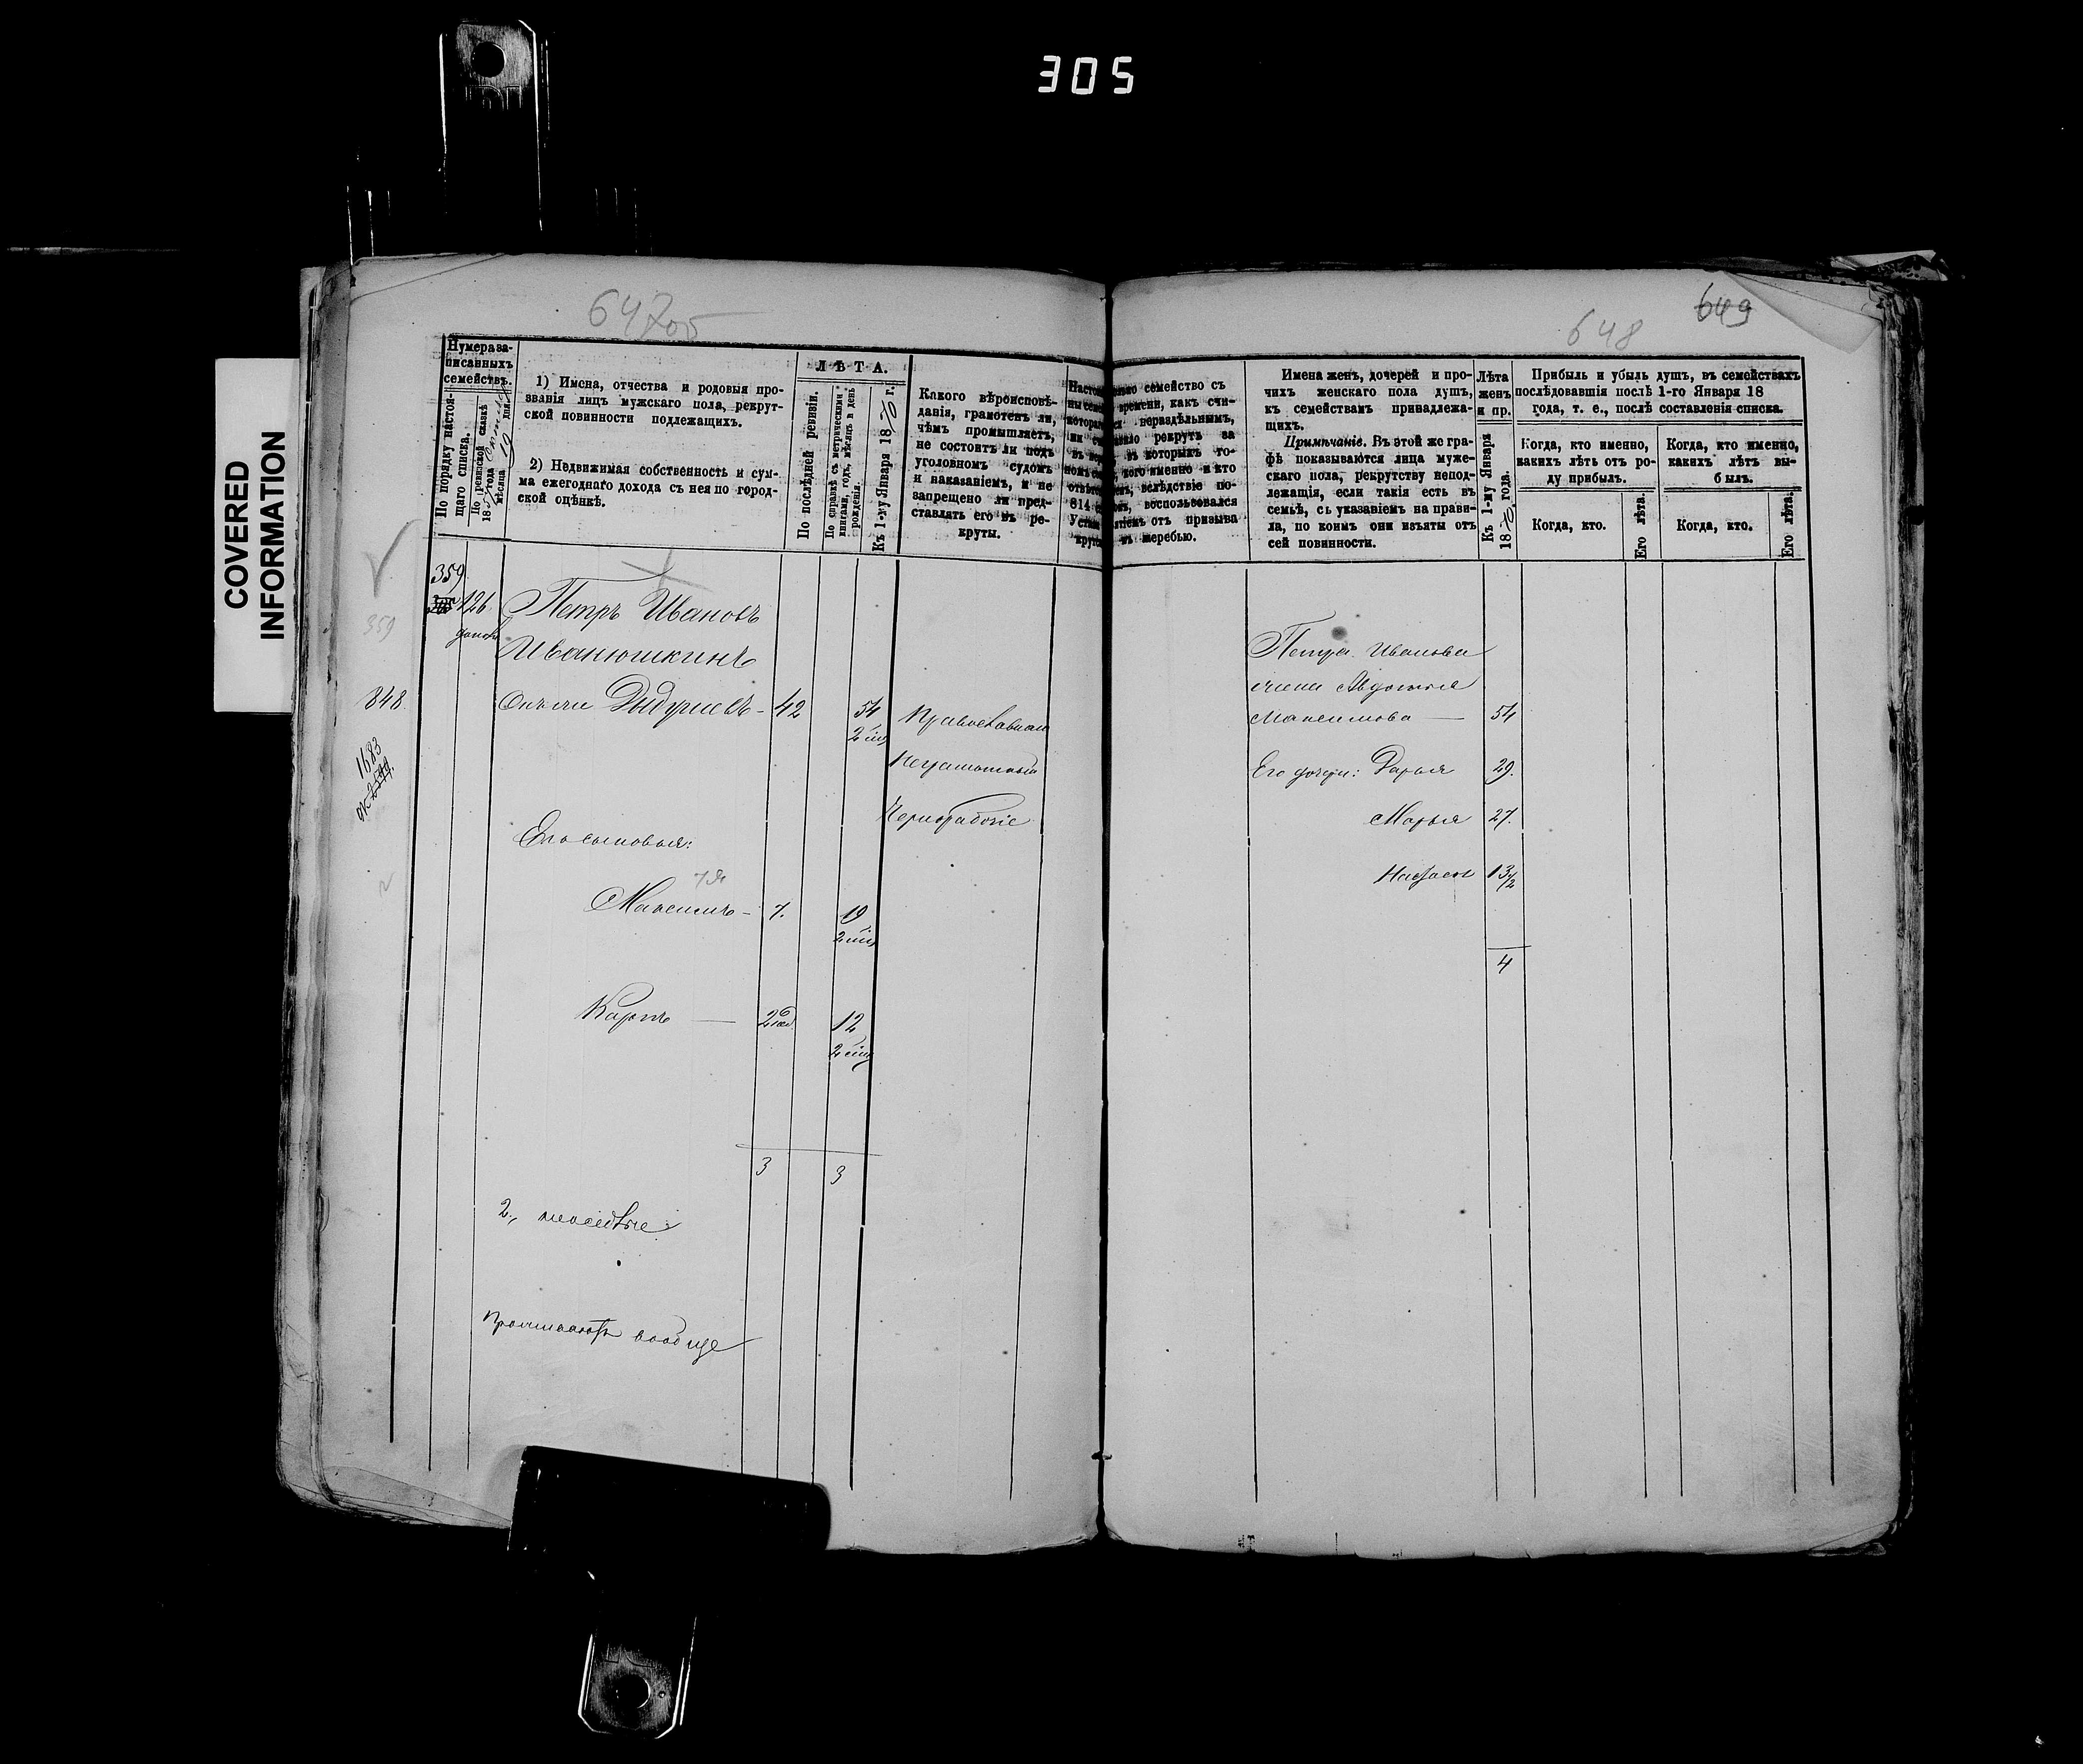 305
COVERED
INFORMATION
647об
648
649
Нумера за-
писанныхъ
семействъ.
По порядку настоя-
щаго списка.
По ревизской сказкѣ
18 года
мѣсяца 19 дня
1) Имена, отчества и родовыя про-
званія лицъ мужскаго пола, рекрут-
ской повинности подлежащихъ.
2) Недвижимая собственность и сум-
ма ежегоднаго дохода съ нея по город-
ской оцѣнкѣ.
ЛѢТА.
По послѣдней ревизіи.
По справкѣ съ метрическими
книгами, годъ, мѣсяцъ и день
рожденія.
Къ 1-му Января 1870 г.
Какого вѣроисповѣ-
данія, грамотенъ ли,
чѣмъ промышляетъ,
не состоитъ ли подъ
уголовнымъ судомъ
и наказаніемъ, и не
запрещено ли пред-
ставлять его въ ре-
круты.
семейство съ
времени, какъ счи-
нераздѣльнымъ,
рекрутъ за
въ которыхъ го-
кого именно и кто
вслѣдствіе по-
воспользовался
отъ призыва
жеребью.
Имена женъ, дочерей и про-
чихъ женскаго пола душъ,
къ семействамъ принадлежа-
щихъ.
Примѣчаніе. Въ этой же гра-
фѣ показываются лица муже-
скаго пола, рекрутству непод-
лежащія, если такія есть въ
семьѣ, съ указаніемъ на прави-
ла, по коимъ они изъяты отъ
сей повинности.
Лѣта
женъ
и пр.
Къ 1-му Января
1870 года.
Прибыль и убыль душъ, въ семействахъ
послѣдовавшія послѣ 1-го Января 18
года, т. е., послѣ составленія списка.
Когда, кто именно,
какихъ лѣтъ отъ ро-
ду прибылъ.
Когда, кто именно,
какихъ лѣтъ вы-
былъ.
Когда, кто.
Его лѣта.
Когда, кто.
Его лѣта.
359
126
359
Петръ Ивановъ
Иванюшкинъ
848
42
54
2 мѣс
Православнаго
Неграмотный
Чернорабочіе
1683
Его сыновья:
Максимъ - 7.
19
2 мѣс
Карпъ
12
2 мѣс
3
3
Проживаютъ вообще
Петра Иванова
жена Авдотья
Максимова — 54
Его дочери: Дарья 29.
Марья 27.
13 1/2
4